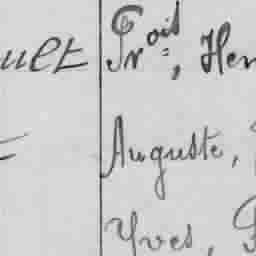 uet Frois, Hen
Auguste,
Yves,